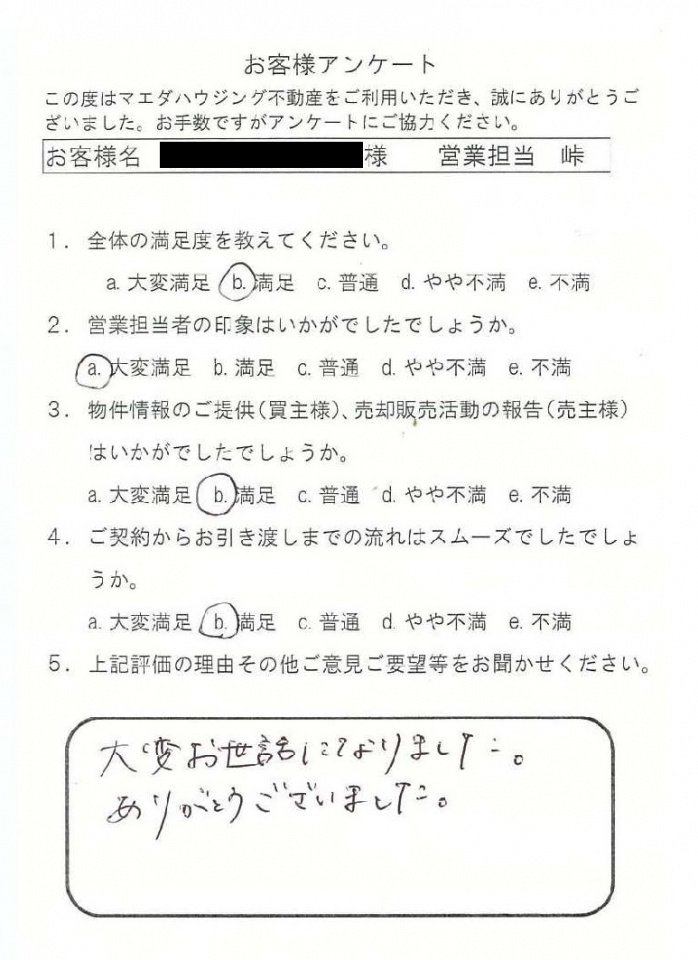 お客様アンケート
この度はマエダハウジング不動産をご利用いただき、誠にありがとうご
ざいました。お手数ですがアンケートにご協力ください。
お客様名 様 営業担当 峠
1. 全体の満足度を教えてください。
a. 大変満足 b. 満足 c. 普通 d. やや不満 e. 不満
2. 営業担当者の印象はいかがでしたでしょうか。
a. 大変満足 b. 満足 c. 普通 d. やや不満 e. 不満
3. 物件情報のご提供(買主様)、売却販売活動の報告(売主様)
はいかがでしたでしょうか。
a. 大変満足 b. 満足 c. 普通 d. やや不満 e. 不満
4. ご契約からお引き渡しまでの流れはスムーズでしたでしょ
うか。
a. 大変満足 b. 満足 c. 普通 d. やや不満 e. 不満
5. 上記評価の理由その他ご意見ご要望等をお聞かせください。
大変お世話になりました。
ありがとうございました。